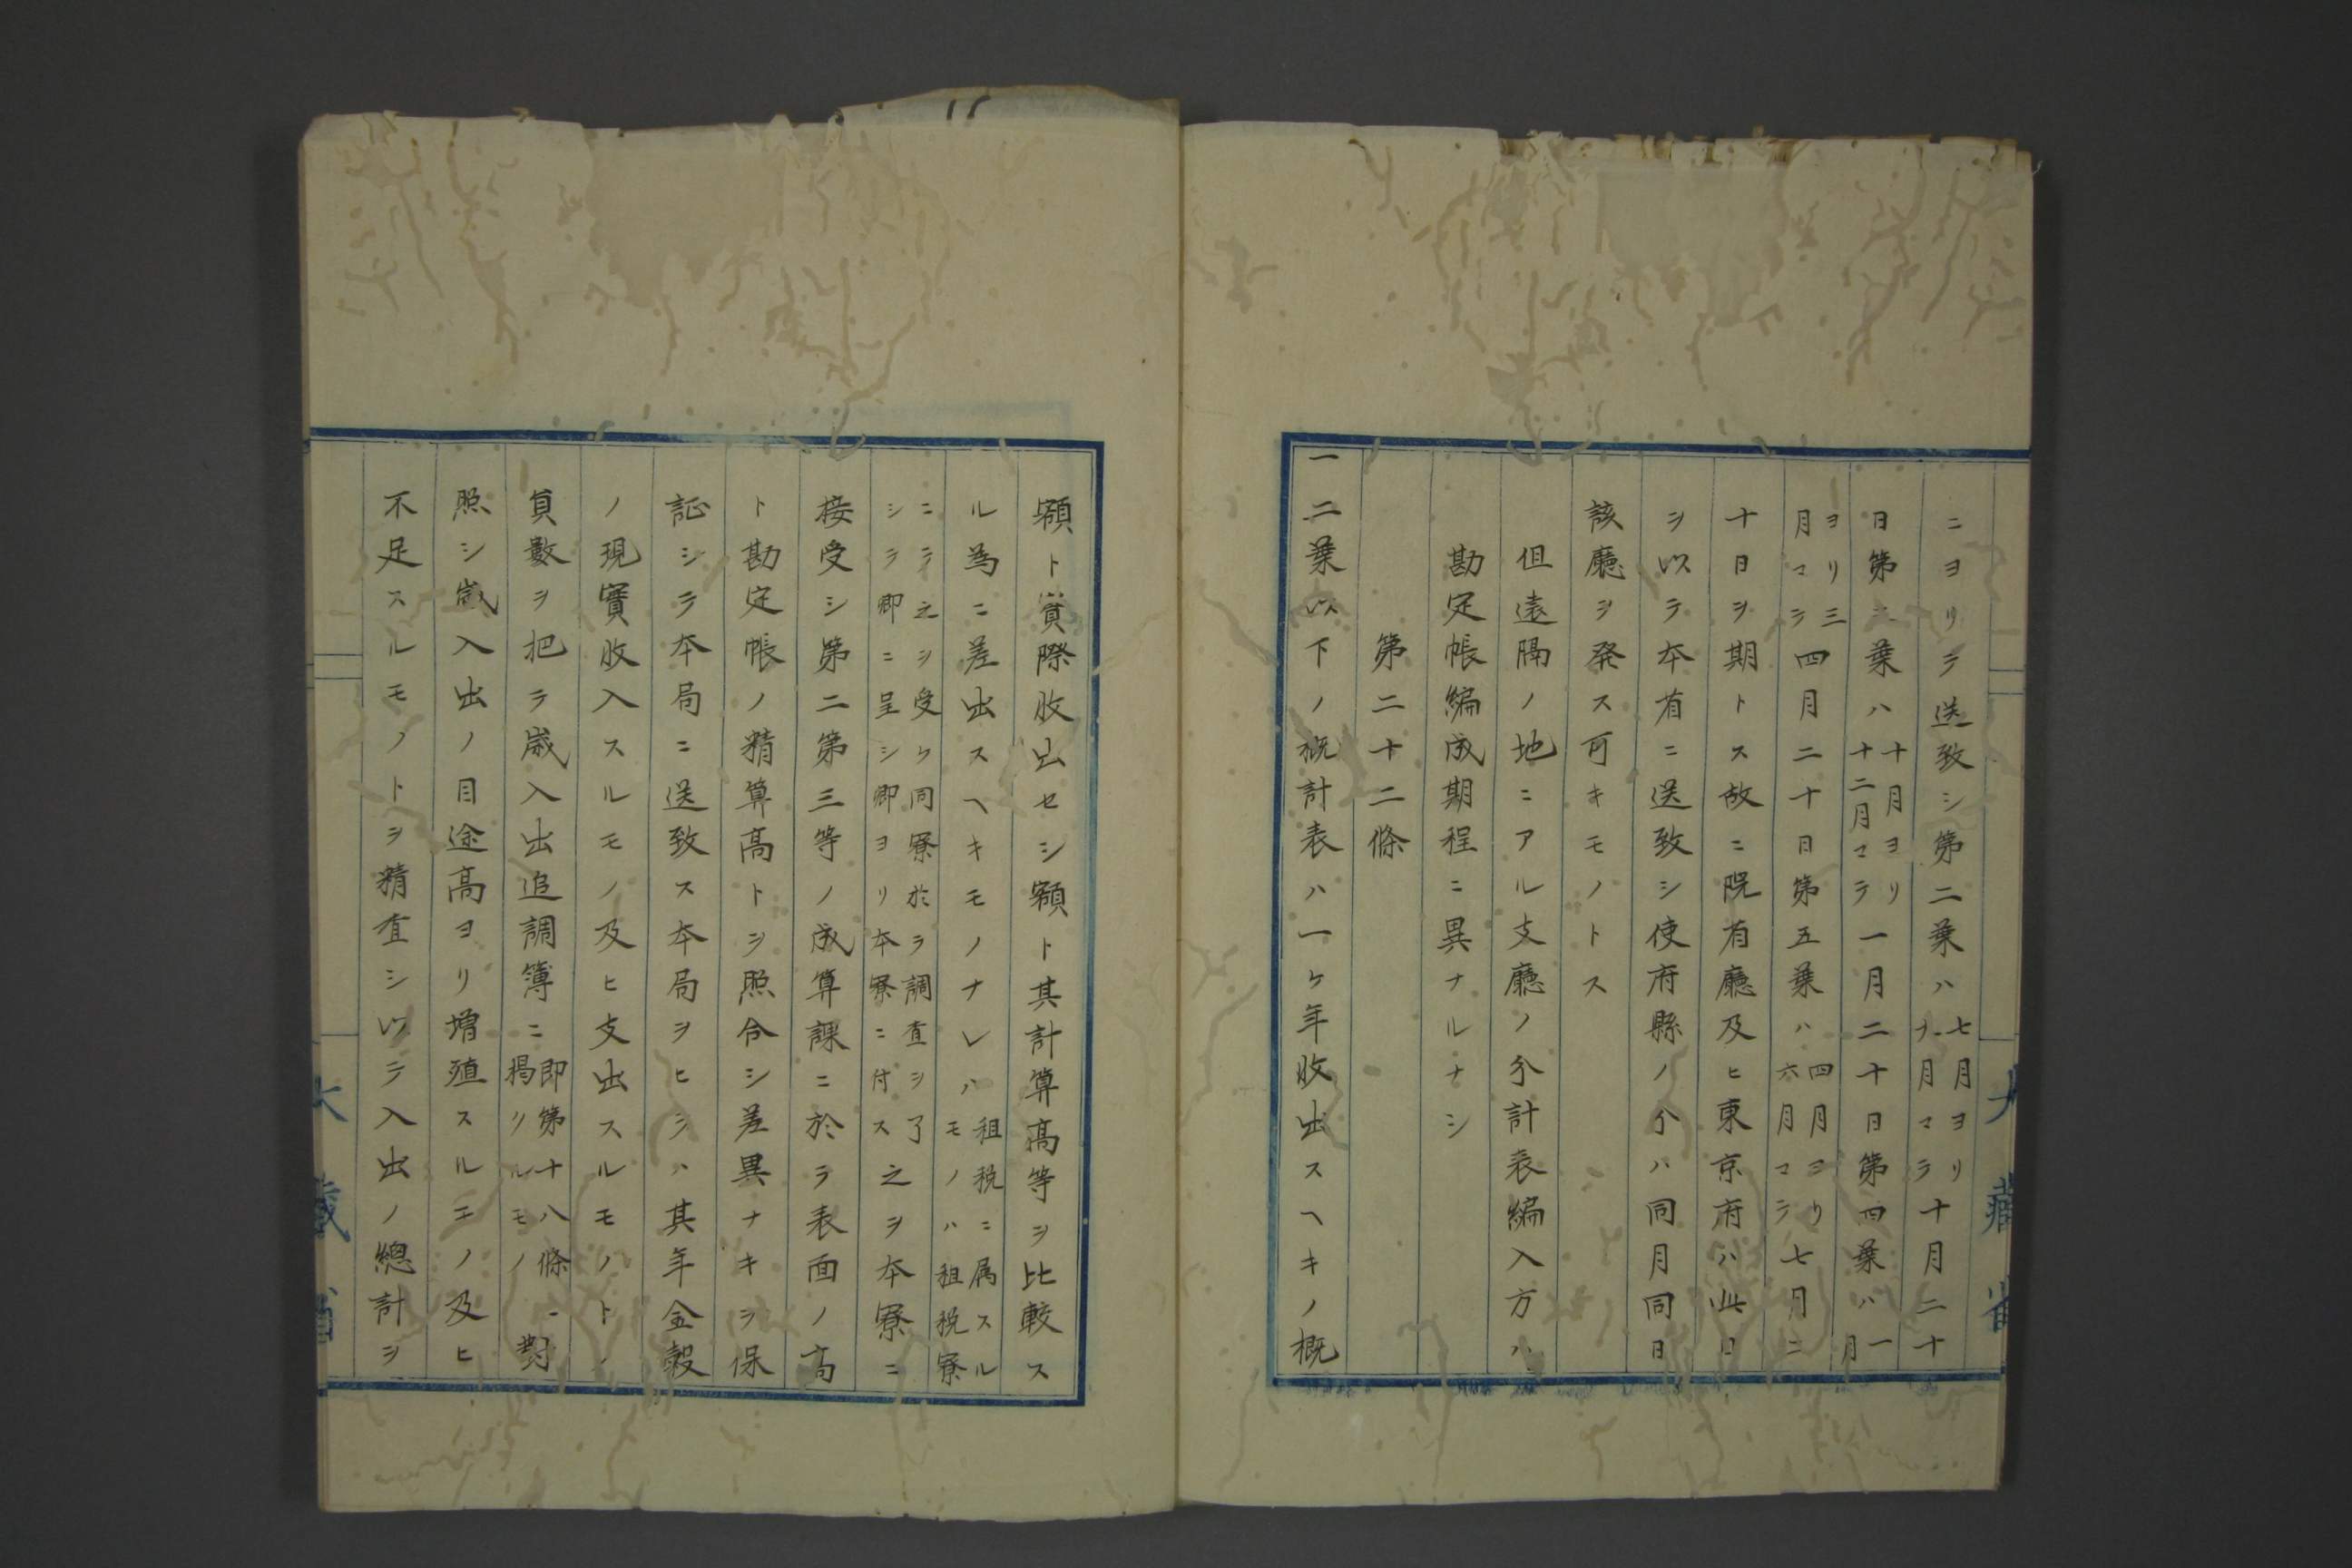 ニヨリテ送致シ第二葉ハ七月ヨリ九月マテ十月二十
日第三葉ハ十月ヨリ十二月マテ一月二十日第四葉ハ一月
ヨリ三月マテ四月二十日第五葉ハ四月ヨリ六月マテ七月二
十日ヲ期トス故ニ院省廳及ヒ東京府ハ此日
ヲ以テ本省ニ送致シ使府縣ノ分ハ同月同日
該廳ヲ発ス可キモノトス
但遠隔ノ地ニアル支廳ノ分計表編入方ハ
勘定帳編成期程ニ異ナルナシ
第二十二條
一二葉以下ノ概計表ハ一ケ年收出スヘキノ概
大藏省
額ト實際收出セシ額ト其計算高等ヲ比較ス
ル為ニ差出スヘキモノナレハ租税ニ属スルモノハ租税寮
ニテ之ヲ受ケ同寮於テ調査ヲ了シテ卿ニ呈シ卿ヨリ本寮ニ付ス之ヲ本寮ニ
接受シ第二第三等ノ成算課ニ於テ表面ノ高
ト勘定帳ノ精算高トヲ照合シ差異ナキヲ保
証シテ本局ニ送致ス本局ヲヒテハ其年金穀
ノ現實收入スルモノ及ヒ支出スルモノトノ
員數ヲ把テ歳入出追調簿ニ即第十八條ニ掲クルモノ對
照シ歳入出ノ目途高ヨリ増殖スルモノ及ヒ
不足スルモノトヲ精査シ以テ入出ノ總計ヲ
大藏省